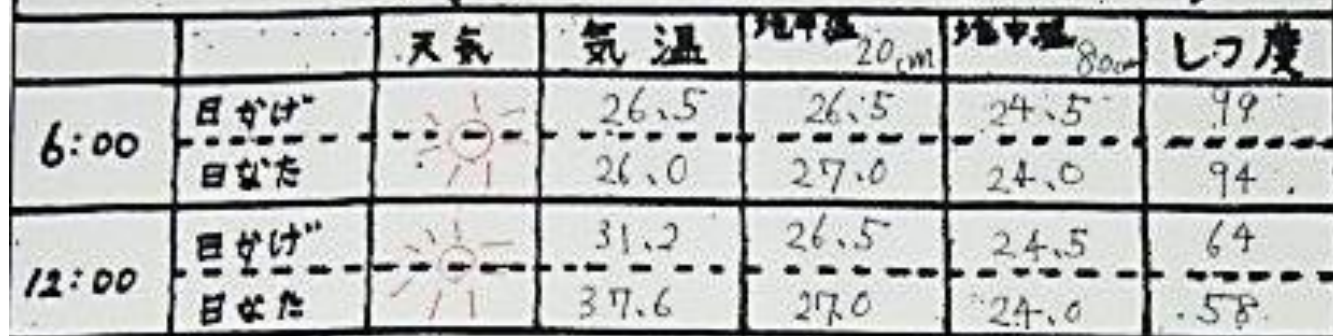 天気 気温 地中温20cm 地中温80cm しつ度
6:00 日かげ 26.5 26.5 24.5 99
日なた 26.0 27.0 24.0 94
12:00 日かげ 31.2 26.5 24.5 64
日なた 37.6 27.0 24.0 58